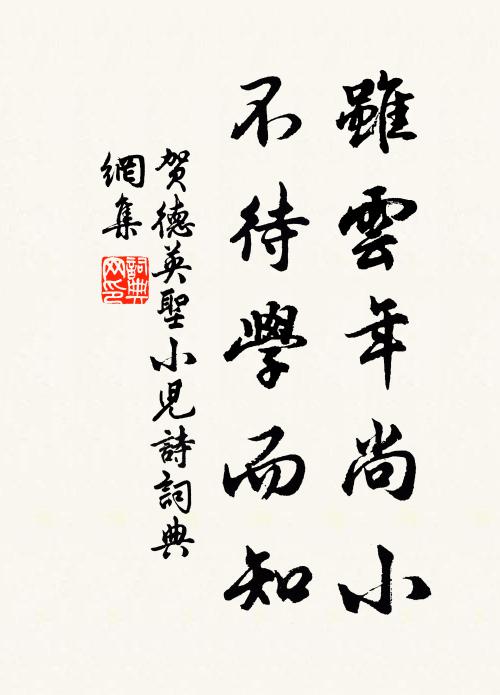 雖雲年尚小
不待學而知
贺德英聖小児詩詞典
網集
詞典
网印